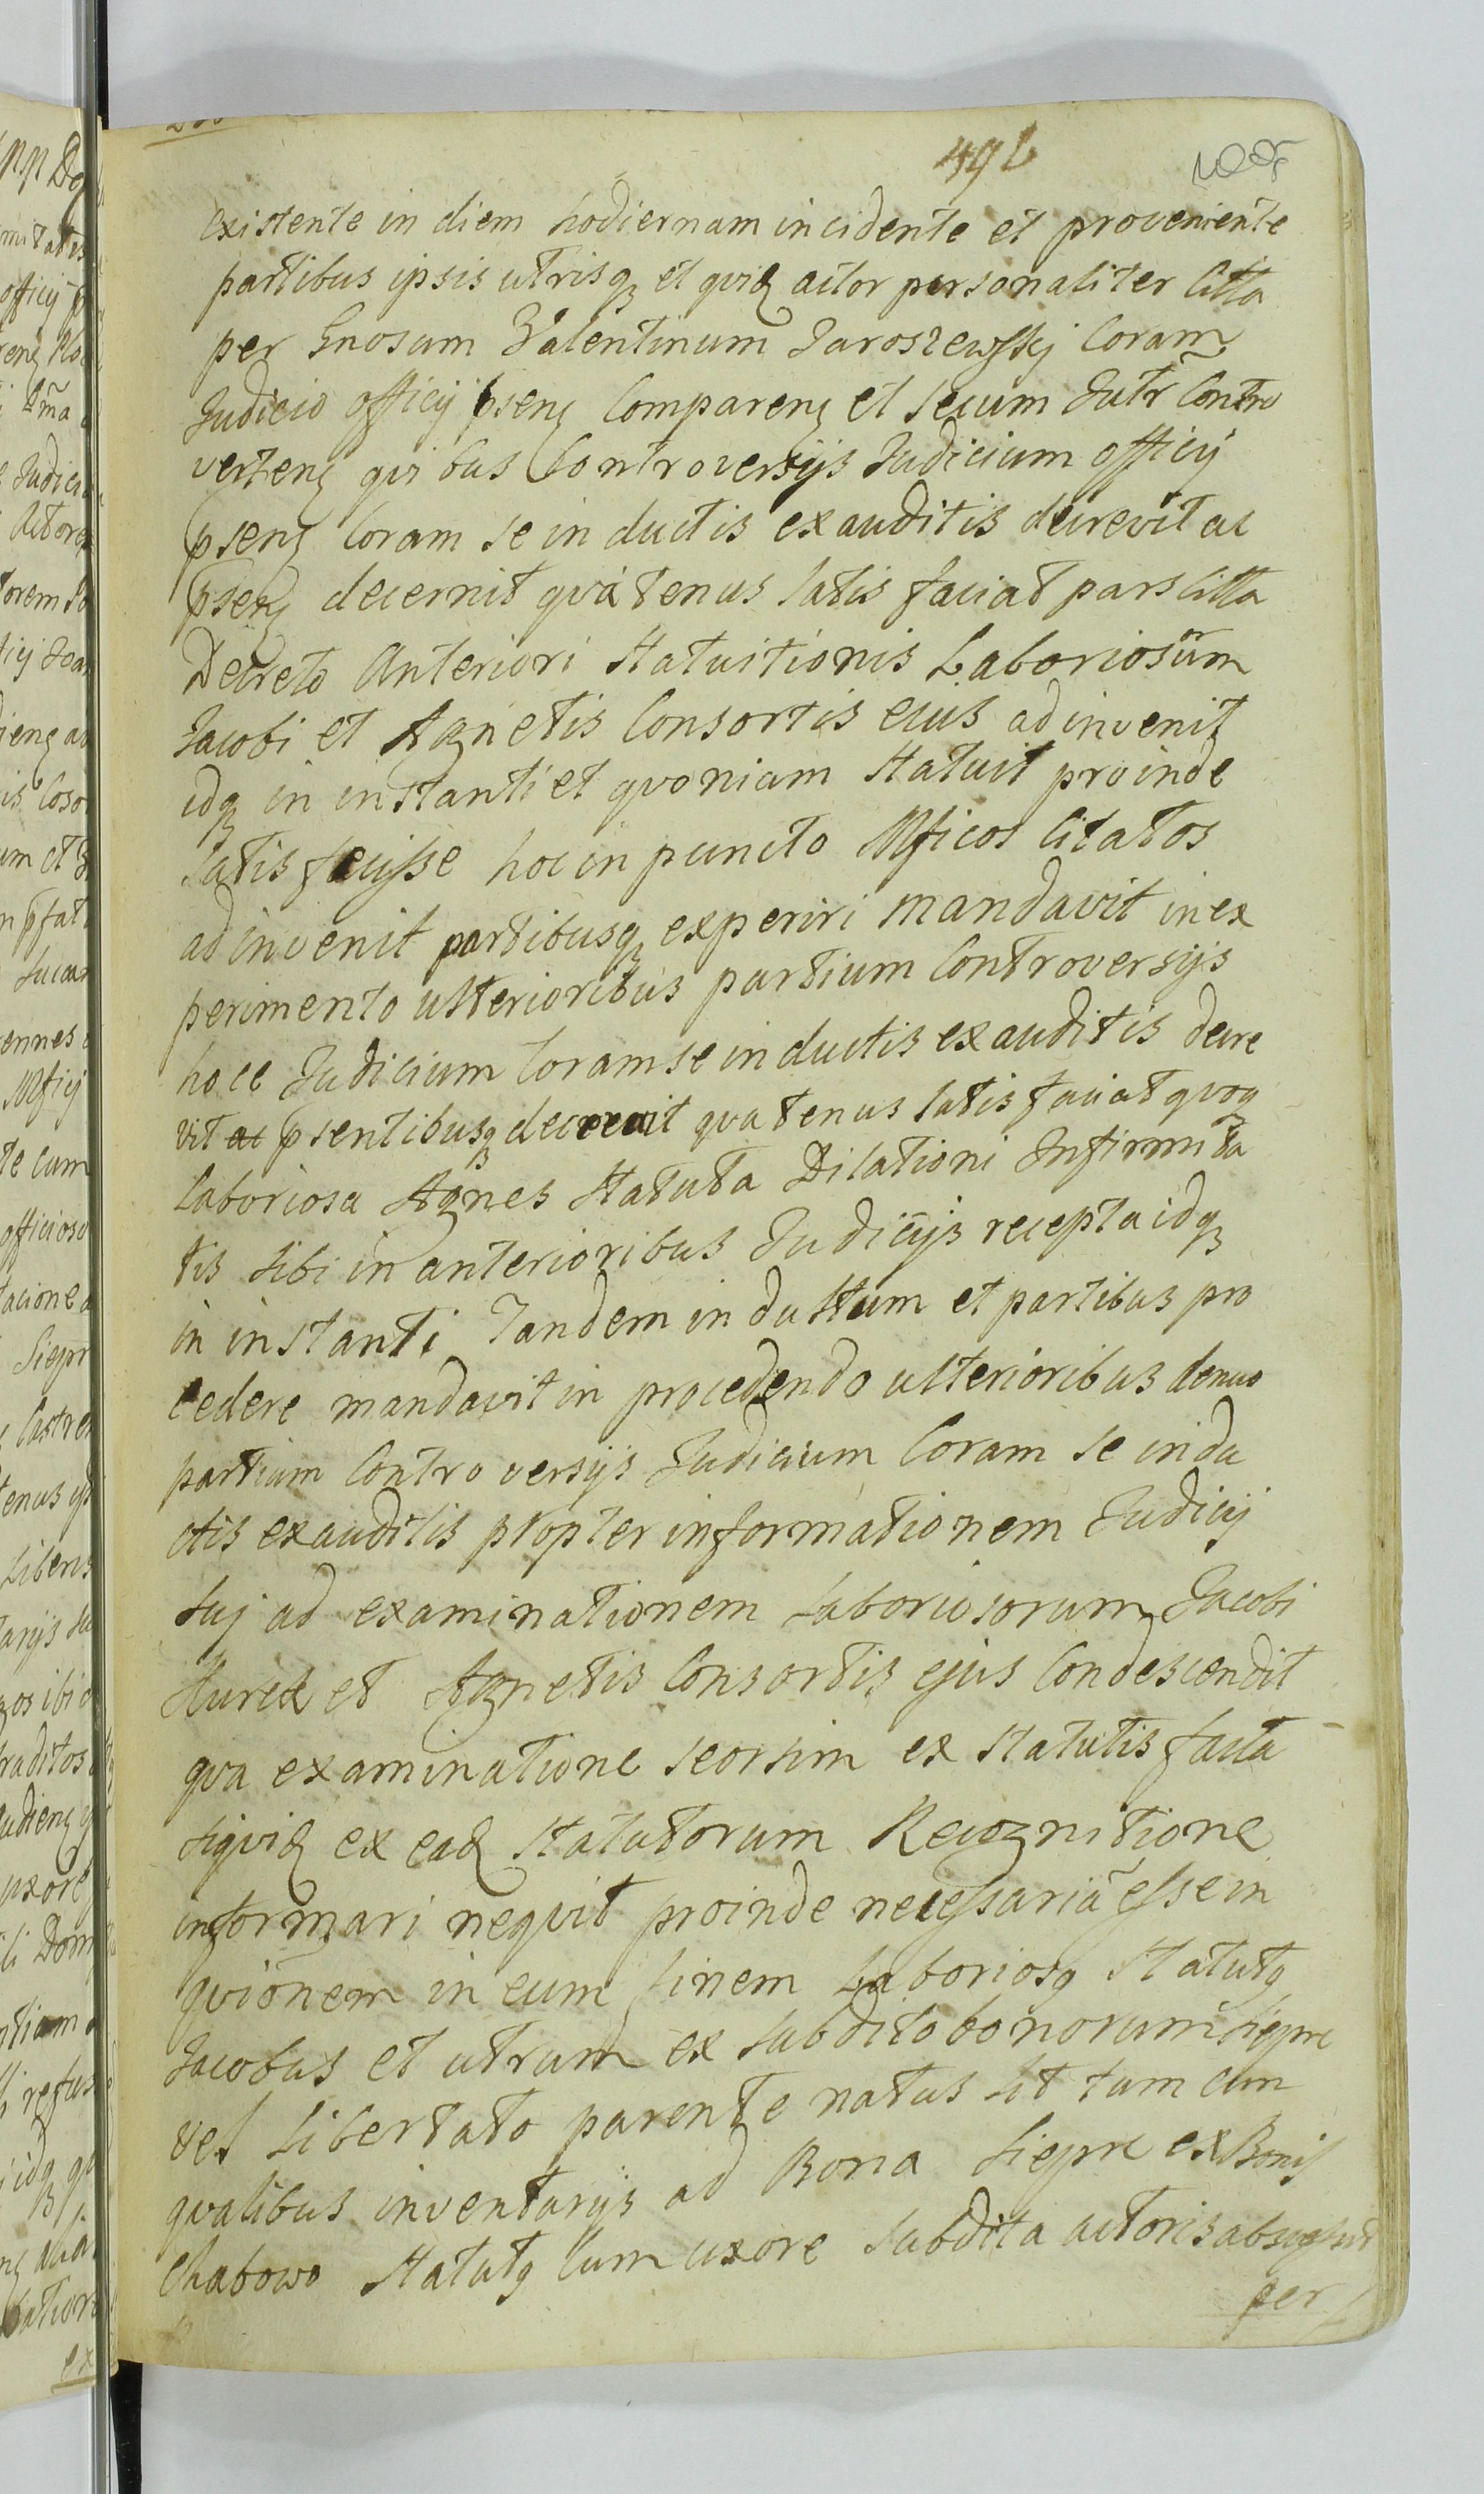 496
existente in diem hodiernam incidente et proveniente
partibus ipsis utrisqȝ et qvidȝ actor personaliter Citta
per Gnosum Valentinum Jaroszewskj Coram
Judicio officij pseng Compareng et secum Jntr Contro
verteng qvibus Controversijs Judicium officij
pseng Coram se inductis exauditis decrevit ac
pseng decernit qvatenus satis faciat pars Citta
Decreto Anteriori Statuitionis Laboriosum
Jacobi et Agnetis Consortis eius adinvenit
idqȝ in instanti et qvoniam Statuit proinde
satis fecisse hoc in puncto Mficos Citatos
adinvenit partibusqȝ experiri mandavit in ex
perimento ulterioribus partium Controversijs
hocce Judicium Coram se inductis exauditis decre
vit ac psentibusqȝ decrevit qvatenus satis faciat qvoqȝ
Laboriosa Agnes Statuta Dilationi Jnfirmita
tis sibi in anterioribus Judicijs recepta idqȝ
in instanti Tandem indultum et partibus pro
cedere mandavit in procedendo ulterioribus denuo
partium Controversijs Judicium Coram se indu
ctis exauditis propter informationem Judicij
suj ad examinationem Laboriosorum Jacobi
et Agnetis Consortis ejus Condescendit
qva examinatione seorsim ex statutis facta
siqvidȝ ex eadȝ statutorum Recognitione
informari neqvit proinde necessariã esse in
qvionem in eum finem Laboriosg Statutg
Jacobus et utrum ex subdito bonorum Siepre
vel Libertato parente natus sit tum cum
qvalibus inventarijs ad Bona Siepre ex Bonis
Chabowo Statutg Cum uxore subdita actoris
per